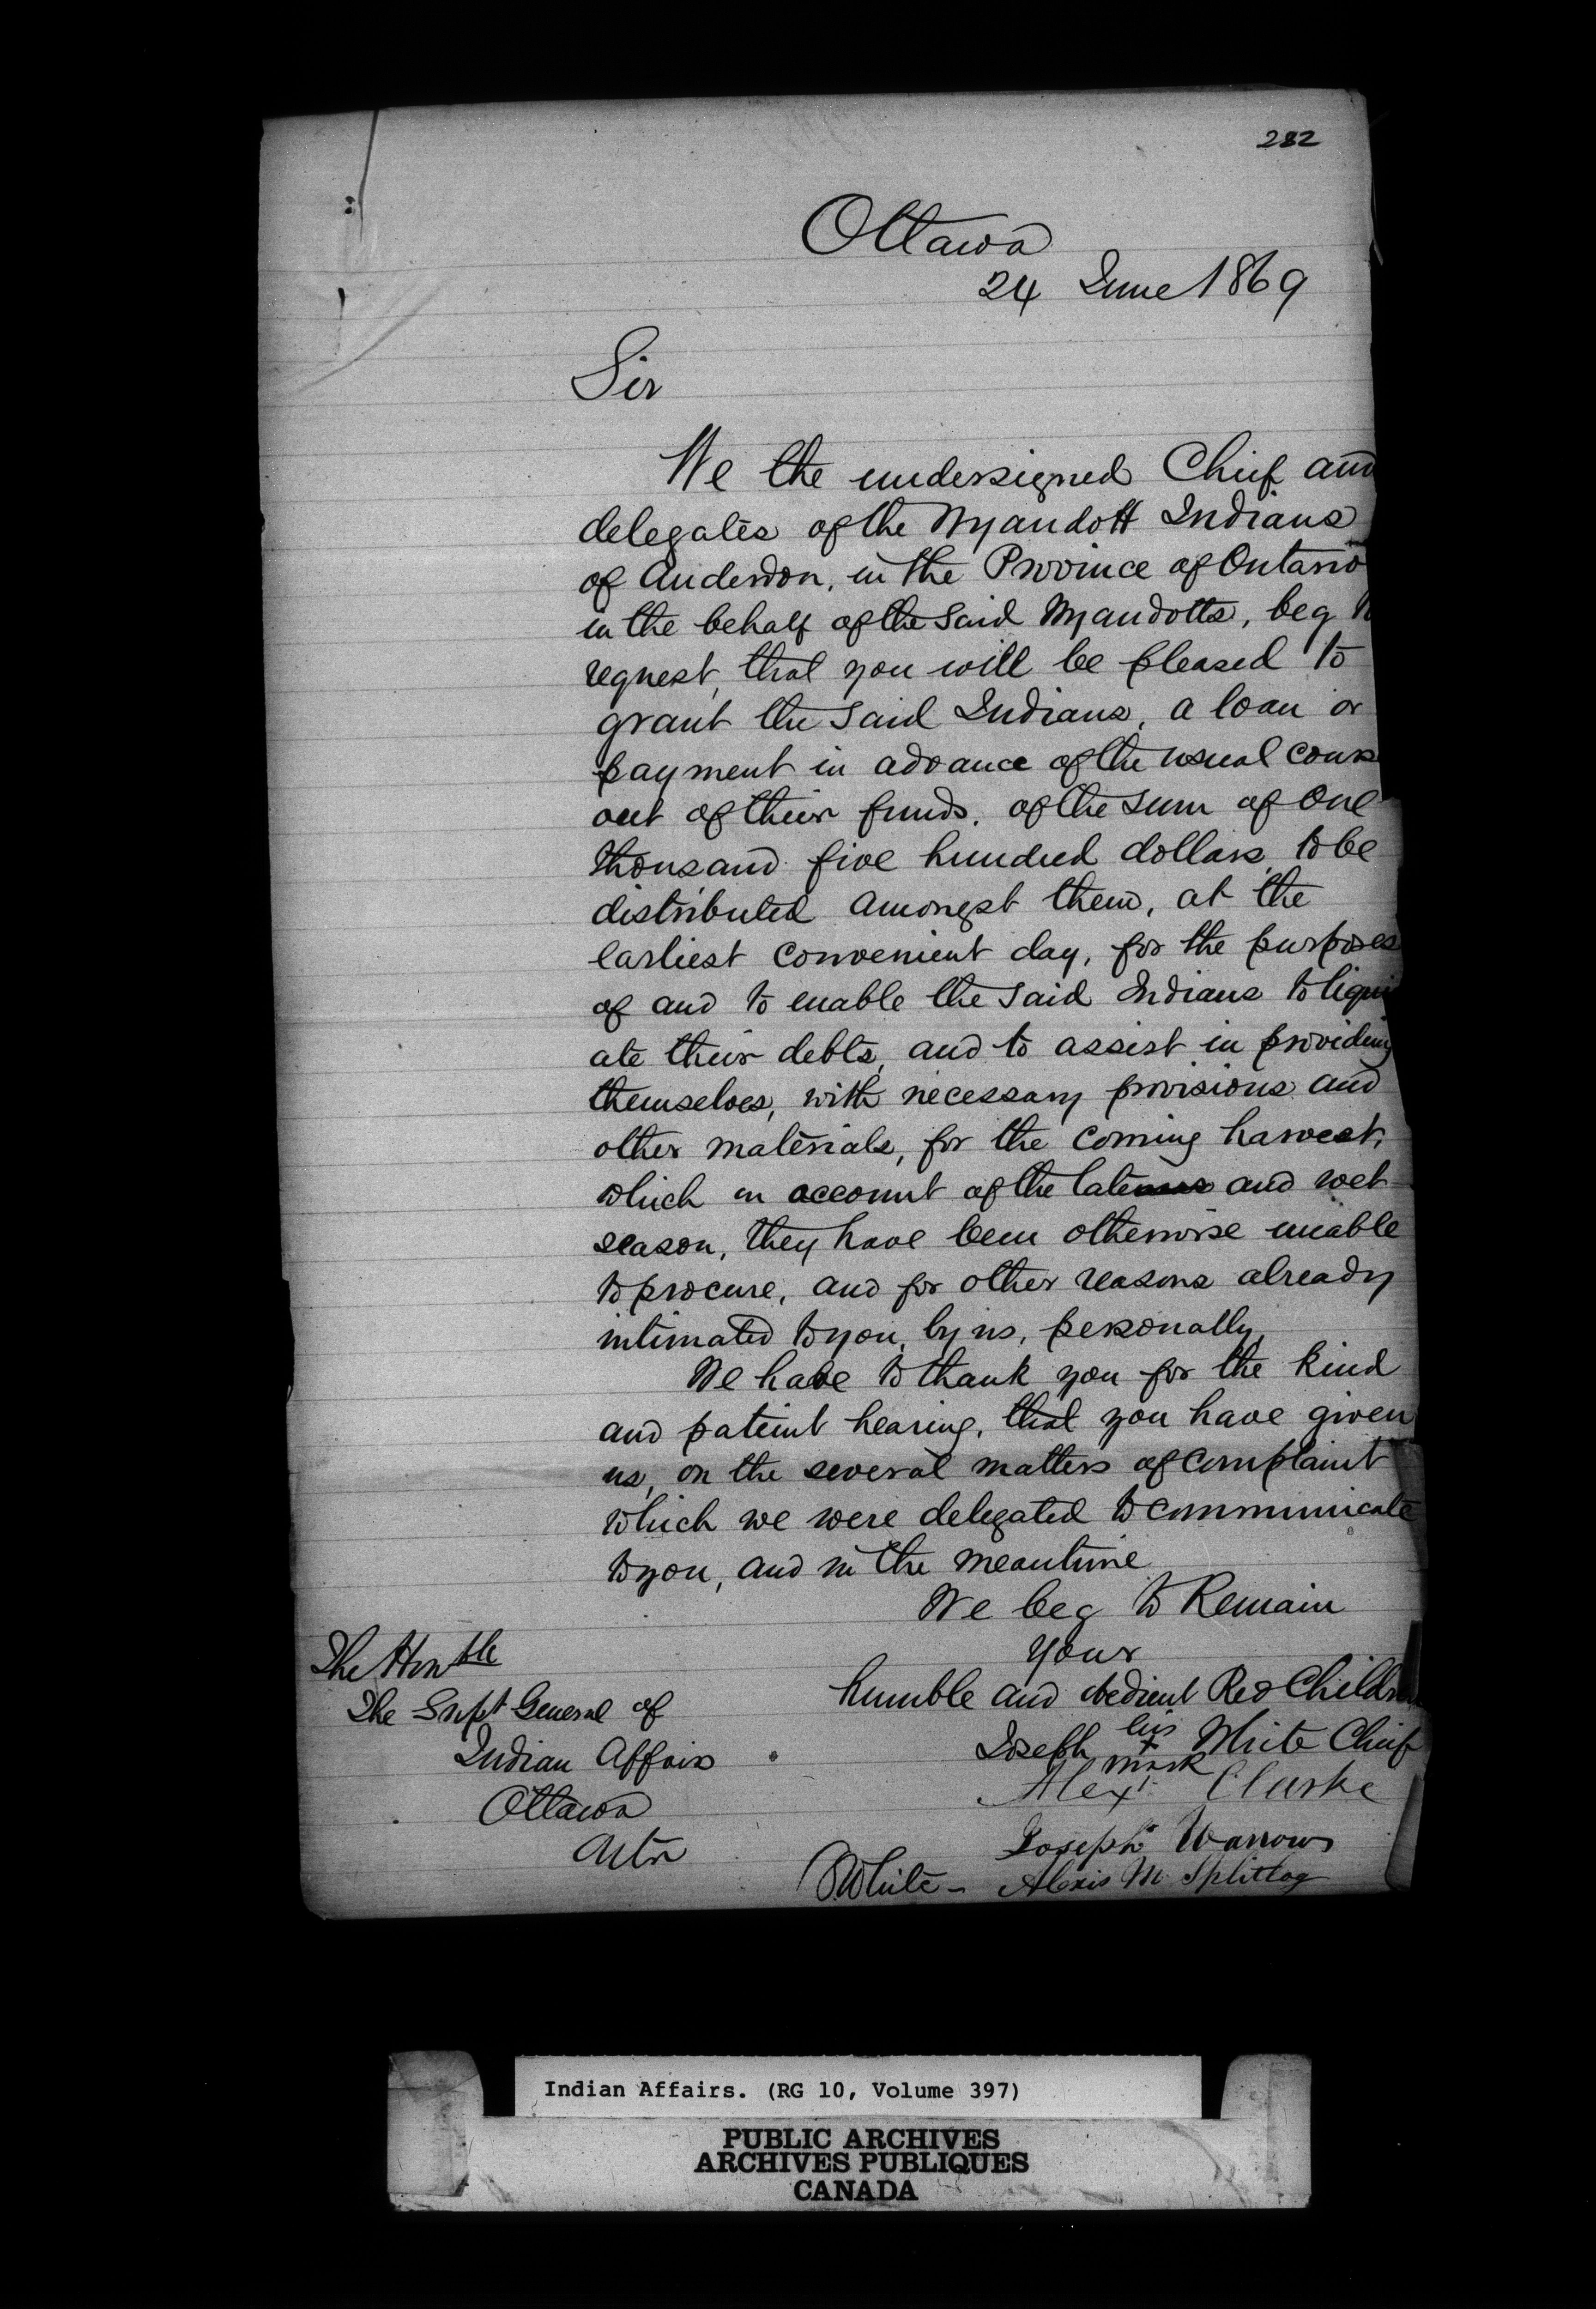 282
Ottawa
24 June 1869
Sir
We the undersigned Chief and
delegates of the Wyandott Indians
of Anderdon, in the Province of Ontario
in the behalf of the said Wyandotts, beg to
request, that you will be pleased to
grant the said Indians, a loan or
payment in advance of the usual cours
out of their funds, of the sum of One
thousand five hundred dollars, to be
distributed amongst them, at the
earliest convenient day, for the purposes
of and to enable the said Indians to liqui
ate their debts, and to assist in providing
themselves, with necessary provisions and
other materials, for the coming harvest,
which on account of the late and wet
season, they have been otherwise unable
to procure, and for other reasons already
intimated to you, by us, personally,
We have to thank you for the kind
and patient hearing, that you have given
us, on the several matters of complaint
which we were delegated to communicate
to you, and in the meantime
We beg to Remain
Your
humble and obedient Red Children
Joseph his + mark White Chief
Alexr Clarke
Joseph Warrow
White - Alexis M Splitlog
The Honble
The Supt General of
Indian Affairs
Ottawa
Indian Affairs. (RG 10, Volume 397)
PUBLIC ARCHIVES
ARCHIVES PUBLIQUES
CANADA